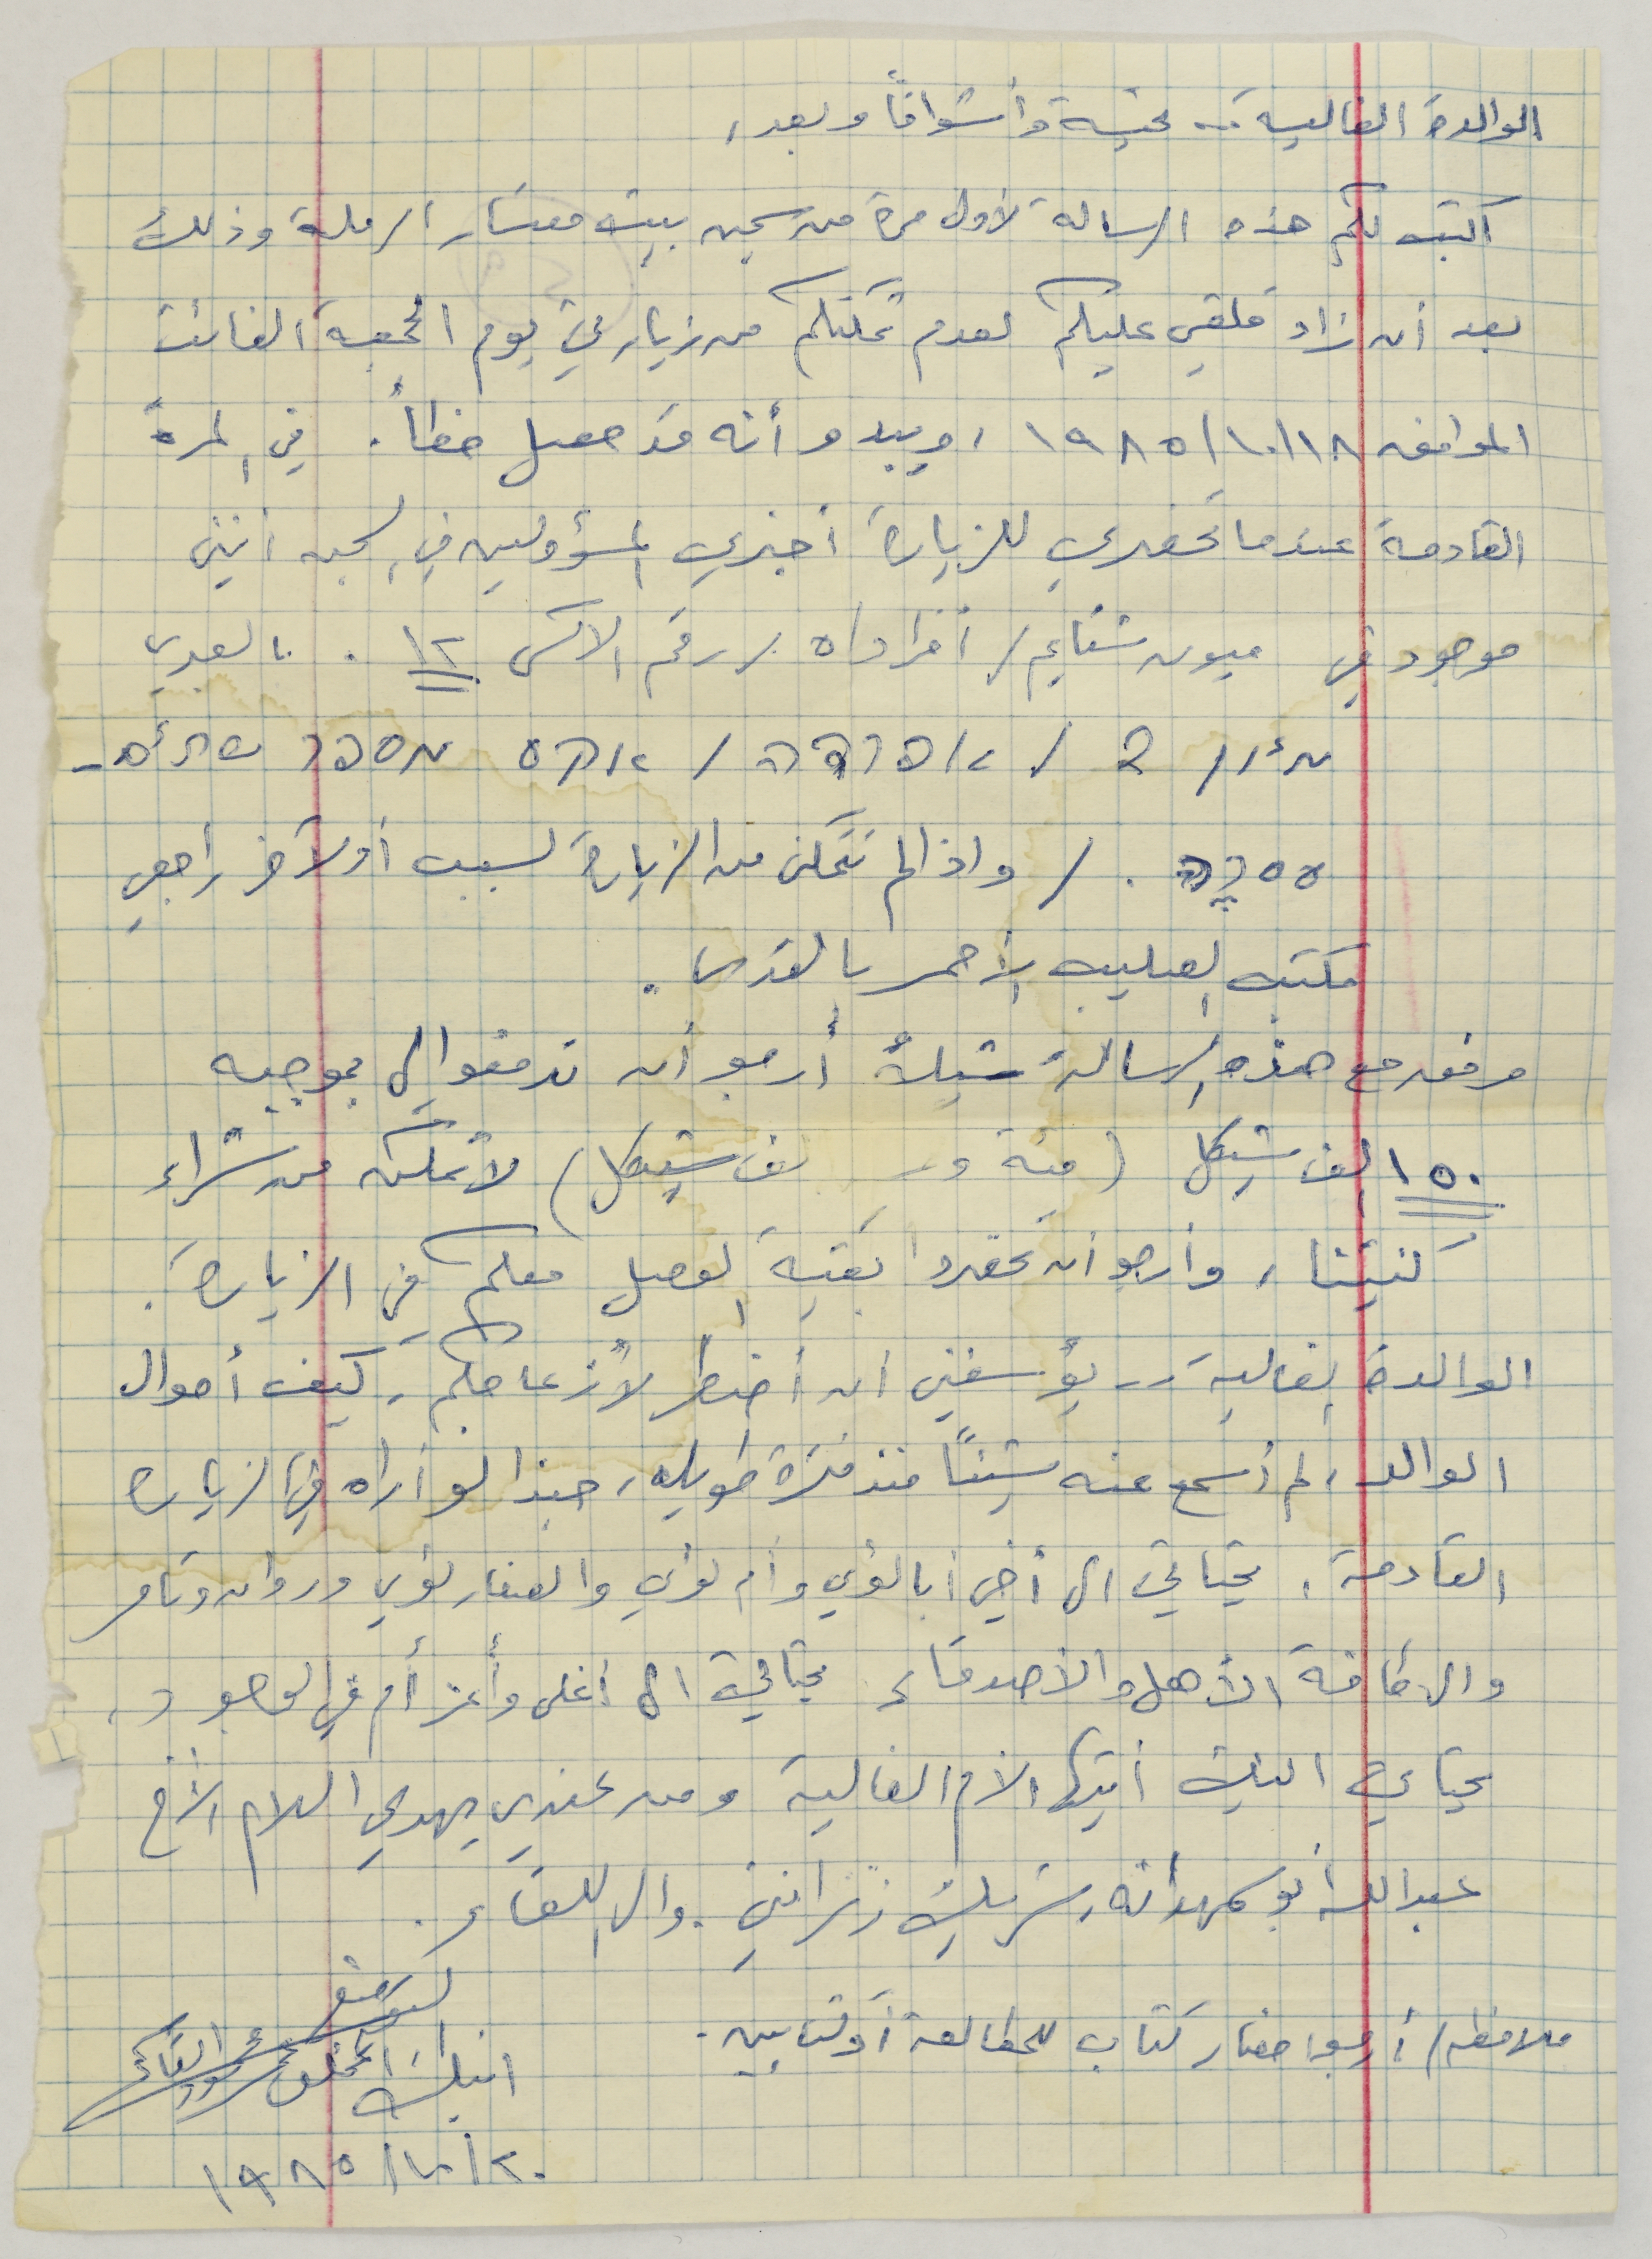 الوالدة الغالية .. تحية وأشواقاً وبعد،
اكتب لكم هذه الرسالة لأول مرة من سجن بيت معتسار الرملة وذلك
بعد أن زاد قلقي عليكم لعدم تمكنكم من زيارتي يوم الجمعة الفائت
الموافق ١٩٨٥/١٠/١٨ ، ويبدو أنه قد حصل خطأ . في المرة
القادمة عندما تحضري للزيارة أخبري المسؤولين في السجن أنني
موجود في شتايم / أفراداه / رقم الاكس ١٢ . بالعبري
2 / / מספר
/ واذا لم نتمكن من الزيارة لسبب أو لآخر راجعي
مكتب الصليب الأحمر بالقدس .
مرفق مع هذه الرسالة شيك أرجو أن تدفعوا لي بموجبه
١٥٠ الف شيكل (مئة و الف شيكل) لأتمكن من شراء
كنتينا ، وأرجو أن تحضروا بقية الوصل معكم في الزيارة .
الوالدة الغالية .. يؤسفني أن أضطر لأزعاجكم ، كيف أحوال
الوالد ، لم أسمع عنه شيئاً منذ فترة طويله ، حبذا لو أراه في الزيارة
القادمة . تحياتي الى أخي أبا لؤي وأم لؤي والصغار لؤي وروان وتامر
والى كافة الأهل والأصدقاء تحياتي الى أغلى وأعز أم في الوجود ،
تحياتي اليك أيتها الأم الغالية ومن عندي يهدي السلام الأخ
عبدالله أبو شريك زنزانتي . والى اللقاء .
ملاحظة / أرجو احضار كتاب للمطالعة أو كتابين .
ابنك المخلص
١٩٨٥/١٠/٢٠